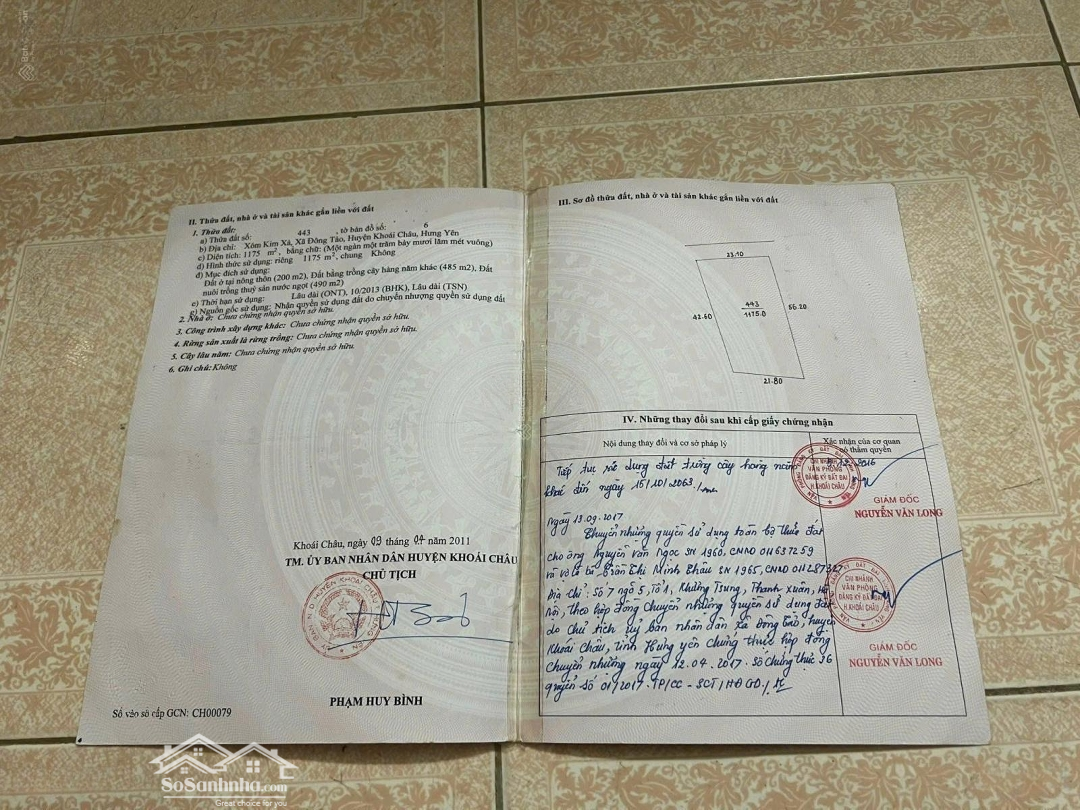 II. Thửa đất, nhà ở và tài sản khác gắn liền với đất
1. Thửa đất:
a) Thửa đất số: 443 , tờ bản đồ số: 6
b) Địa chỉ: Xóm Kim Xá, Xã Đông Tảo, Huyện Khoái Châu, Hưng Yên
c) Diện tích: 1175 m², bằng chữ: (Một ngàn một trăm bảy mươi lăm mét vuông)
d) Hình thức sử dụng: riêng 1175 m², chung Không
đ) Mục đích sử dụng:
Đất ở tại nông thôn (200 m2), Đất bằng trồng cây hàng năm khác (485 m2), Đất
nuôi trồng thuỷ sản nước ngọt (490 m2)
e) Thời hạn sử dụng: Lâu dài (ONT), 10/2013 (BHK), Lâu dài (TSN)
g) Nguồn gốc sử dụng: Nhận quyền sử dụng đất do chuyển nhượng quyền sử dụng đất
2. Nhà ở: Chưa chứng nhận quyền sở hữu.
3. Công trình xây dựng khác: Chưa chứng nhận quyền sở hữu.
4. Rừng sản xuất là rừng trồng: Chưa chứng nhận quyền sở hữu.
5. Cây lâu năm: Chưa chứng nhận quyền sở hữu.
6. Ghi chú: Không
Khoái Châu, ngày 09 tháng 04 năm 2011
TM. ỦY BAN NHÂN DÂN HUYỆN KHOÁI CHÂU
CHỦ TỊCH
PHẠM HUY BÌNH
Số vào sổ cấp GCN: CH00079
III. Sơ đồ thửa đất, nhà ở và tài sản khác gắn liền với đất
23.10
42.60
443
1175.0
56.20
21.80
IV. Những thay đổi sau khi cấp giấy chứng nhận
Nội dung thay đổi và cơ sở pháp lý
Xác nhận của cơ quan
có thẩm quyền
Tiếp tục sử dụng đất trồng cây hàng năm
khác đến ngày 15/10/2063
2016
CHI NHÁNH
VĂN PHÒNG
ĐĂNG KÝ ĐẤT ĐAI
H.KHOÁI CHÂU
GIÁM ĐỐC
NGUYỄN VĂN LONG
Ngày 13.09.2017
Chuyển nhượng quyền sử dụng toàn bộ thửa đất
cho ông Nguyễn Văn Ngọc SN 1960, CMND 011637259
và vợ là bà Trần Thị Minh Châu SN 1965, CMND 011287327
Địa chỉ: Số 7 ngõ 5, Tổ 1, Khương Trung, Thanh Xuân, Hà
Nội, theo hợp đồng chuyển nhượng quyền sử dụng đất
do Chủ tịch uỷ ban nhân dân xã Đông Tảo, huyện
Khoái Châu, tỉnh Hưng Yên chứng thực hợp đồng
chuyển nhượng ngày 12.04.2017. Số chứng thực 36
quyển số 01/2017.TP/CC-SCT/HĐGD
CHI NHÁNH
VĂN PHÒNG
ĐĂNG KÝ ĐẤT ĐAI
H.KHOÁI CHÂU
GIÁM ĐỐC
NGUYỄN VĂN LONG
SoSanhnha.com
Great choice for you